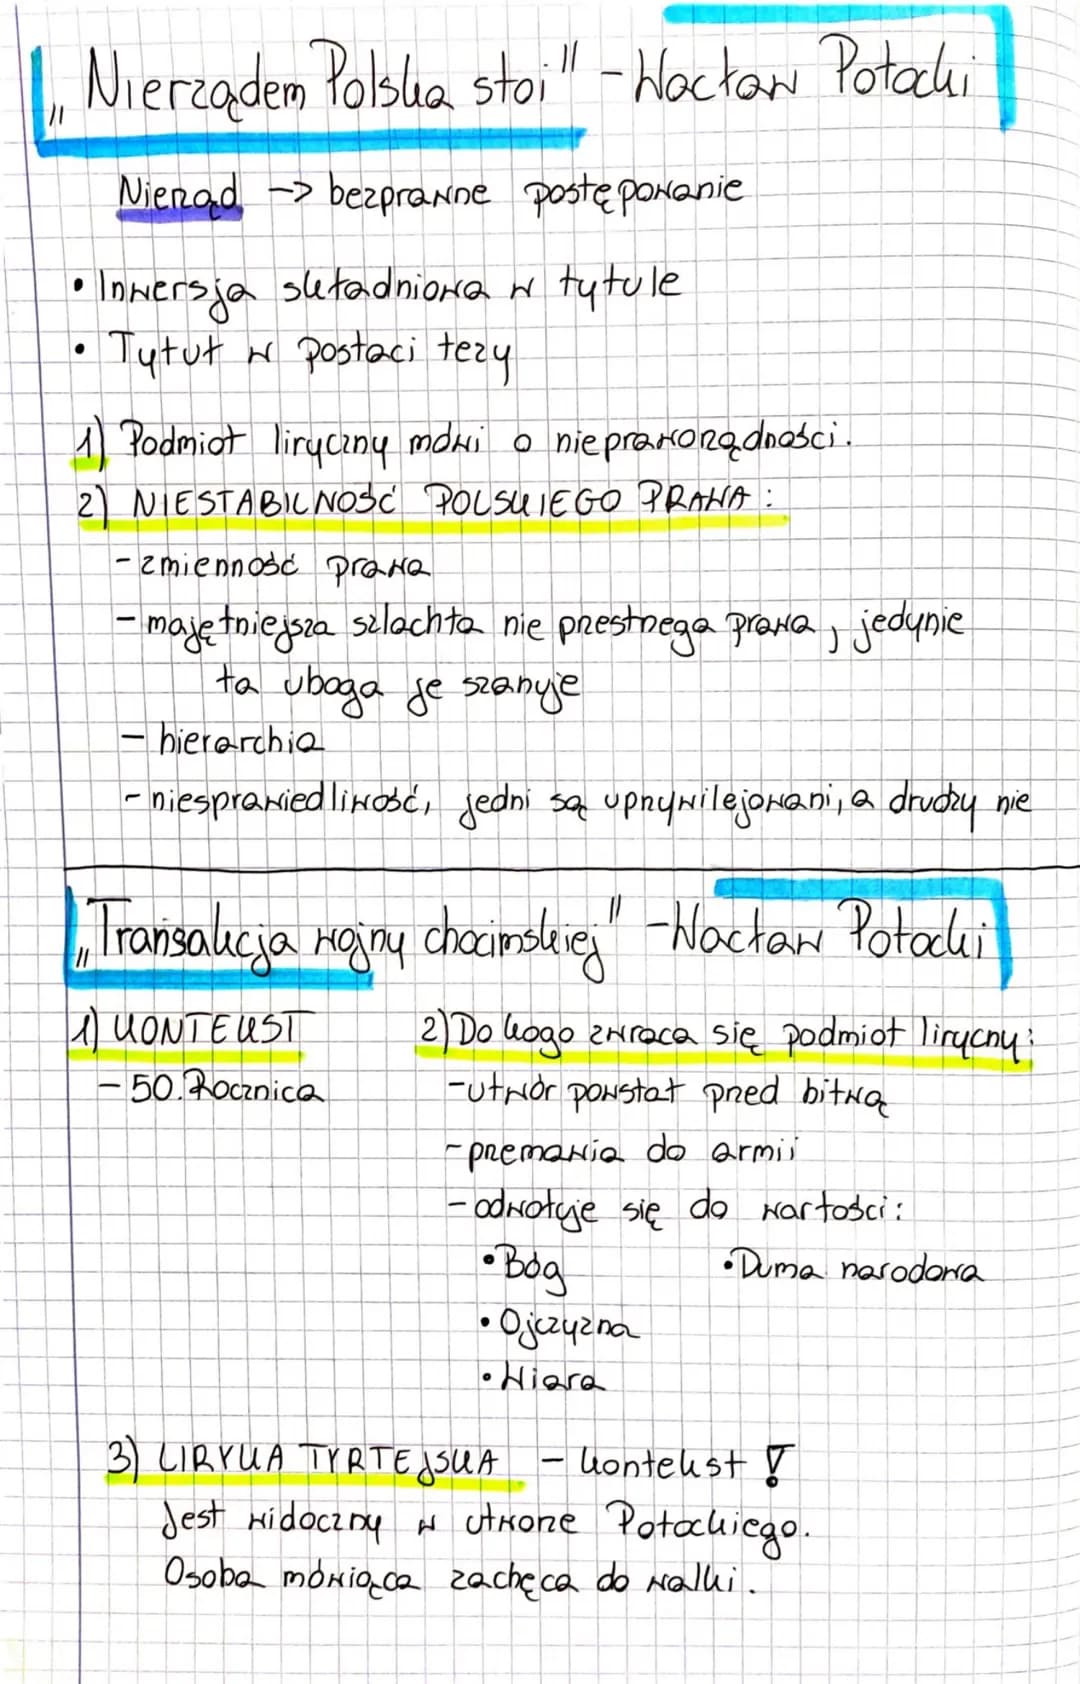 „Nierządem Polska stoi" - Wacław Potocki
Nierząd -> bezprawne postępowanie
• Inwersja składniowa w tytule
• Tytuł w postaci tezy
1) Podmiot liryczny mówi o nieprawor​ządności.
2) NIESTABILNOŚĆ POLSKIEGO PRAWA:
- zmienność prawa
- majętniejsza szlachta nie przestrzega prawa, jedynie
ta uboga je szanyje
- hierarchia
- niesprawiedliwość, jedni są uprzywilejowani, a drudzy nie
„Transakcja wojny chocimskiej" - Wacław Potocki
1) KONTEKST
- 50. Rocznica
2) Do kogo zwraca się podmiot lirycny:
- utwór powstał przed bitwą
- przemawia do armii
- odwołuje się do wartości:
• Bóg
• Duma narodowa
• Ojczyzna
• Wiara
3) LIRYKA TYRTEJSKA - kontekst !
Jest widoczny w utworze Potockiego.
Osoba mówiąca zachęca do walki.